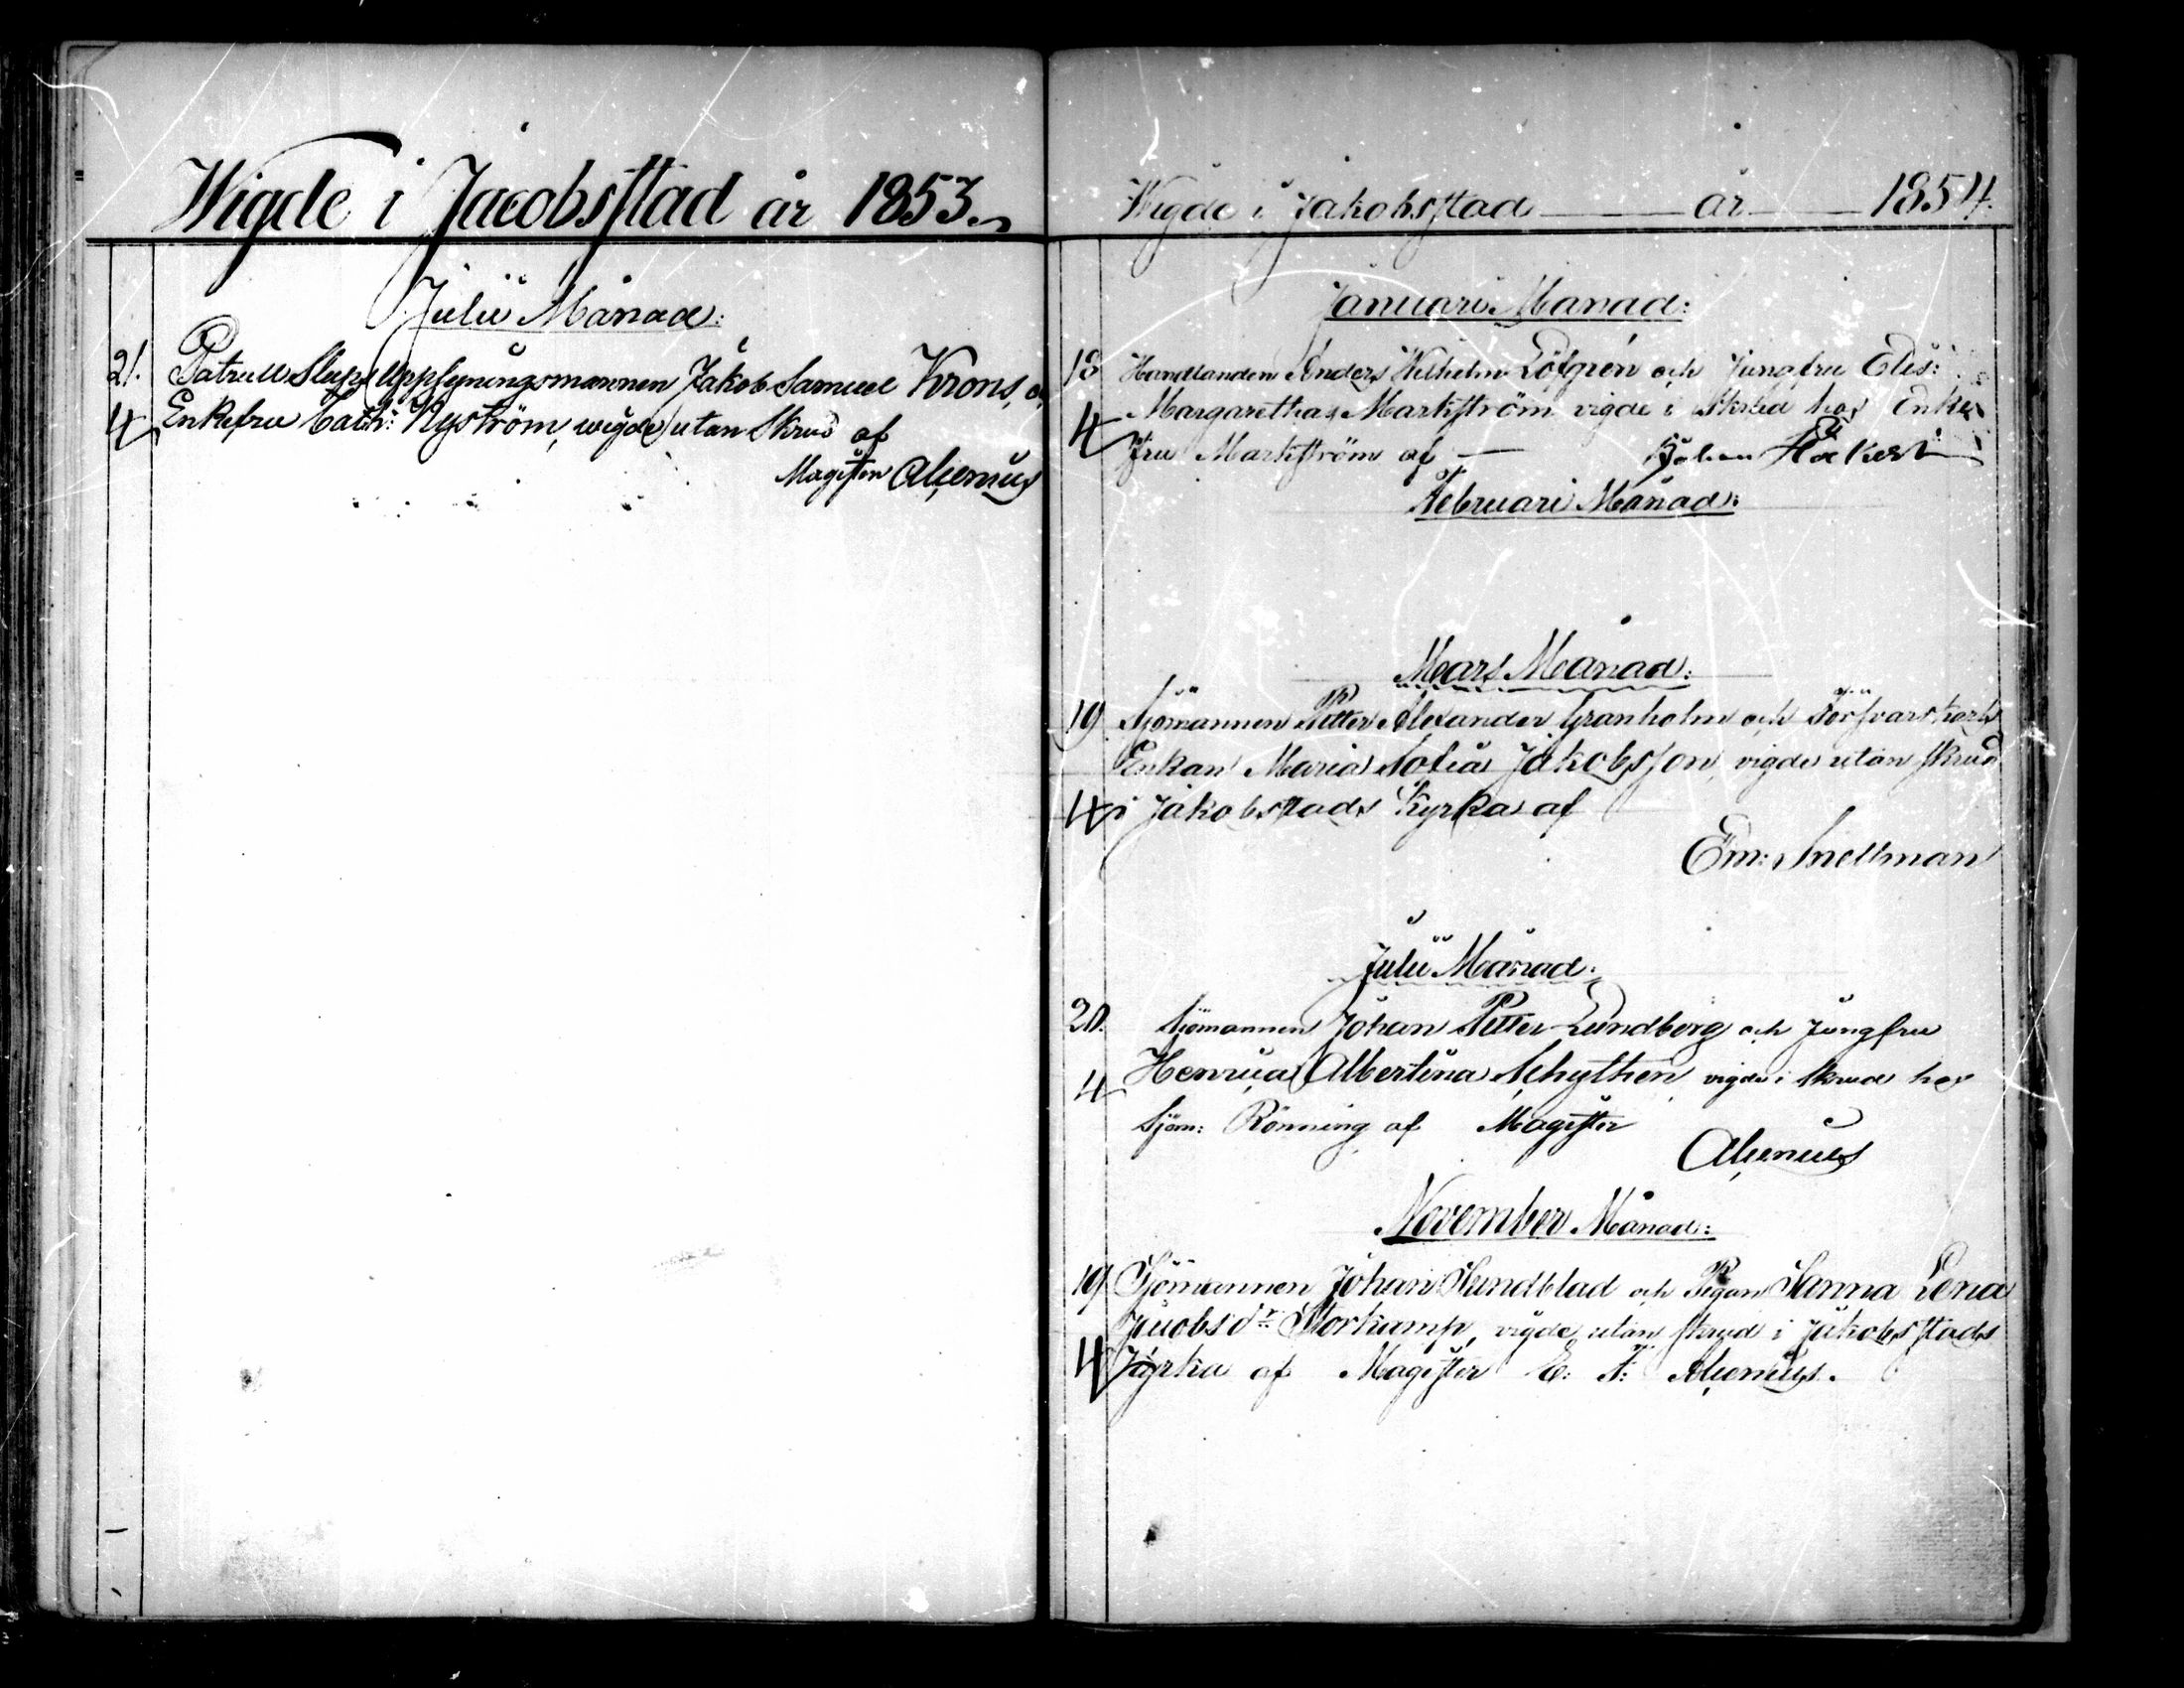 Wigde i Jacobsstad år 1853.
Julii Månad:
21. Patrull Slups Uppsyningsmannen Jakob Samuel Krons, o,
4 Enkefru Cath: Nyström, wigde utan Skrud af
Magister Alcenius
Wigde i Jakobsstad år 1854.
Januari Månad:
13 Handlanden Anders Wilhelm Löfgren och Jungfru Elis:
4 Margaretha Markström vigde i Skrud hos Enke
fru Markström af Johan Höckert
Februari Månad:
Mars Månad:
19 Sjömannen Petter Alexander Granholm och
Enkan Maria Sofia Jakobsson, vigde utan skrud
4 i Jakobstads Kyrka af
Em: Snellman
Julii Månad:
20. Sjömannen Johan Petter Lundberg och Jungfru
4 Albertina Schythen, vigde i Skrud hos
Sjöm: Rönning af Magister
Alcenius
November Månad:
19 Sjömannen Johan Sundblad och Pigan Sanna Lena
Jacobsdr Storkamp, vigde utan skrud i Jakobsstads
4 Kyrka af Magister Alcenius.